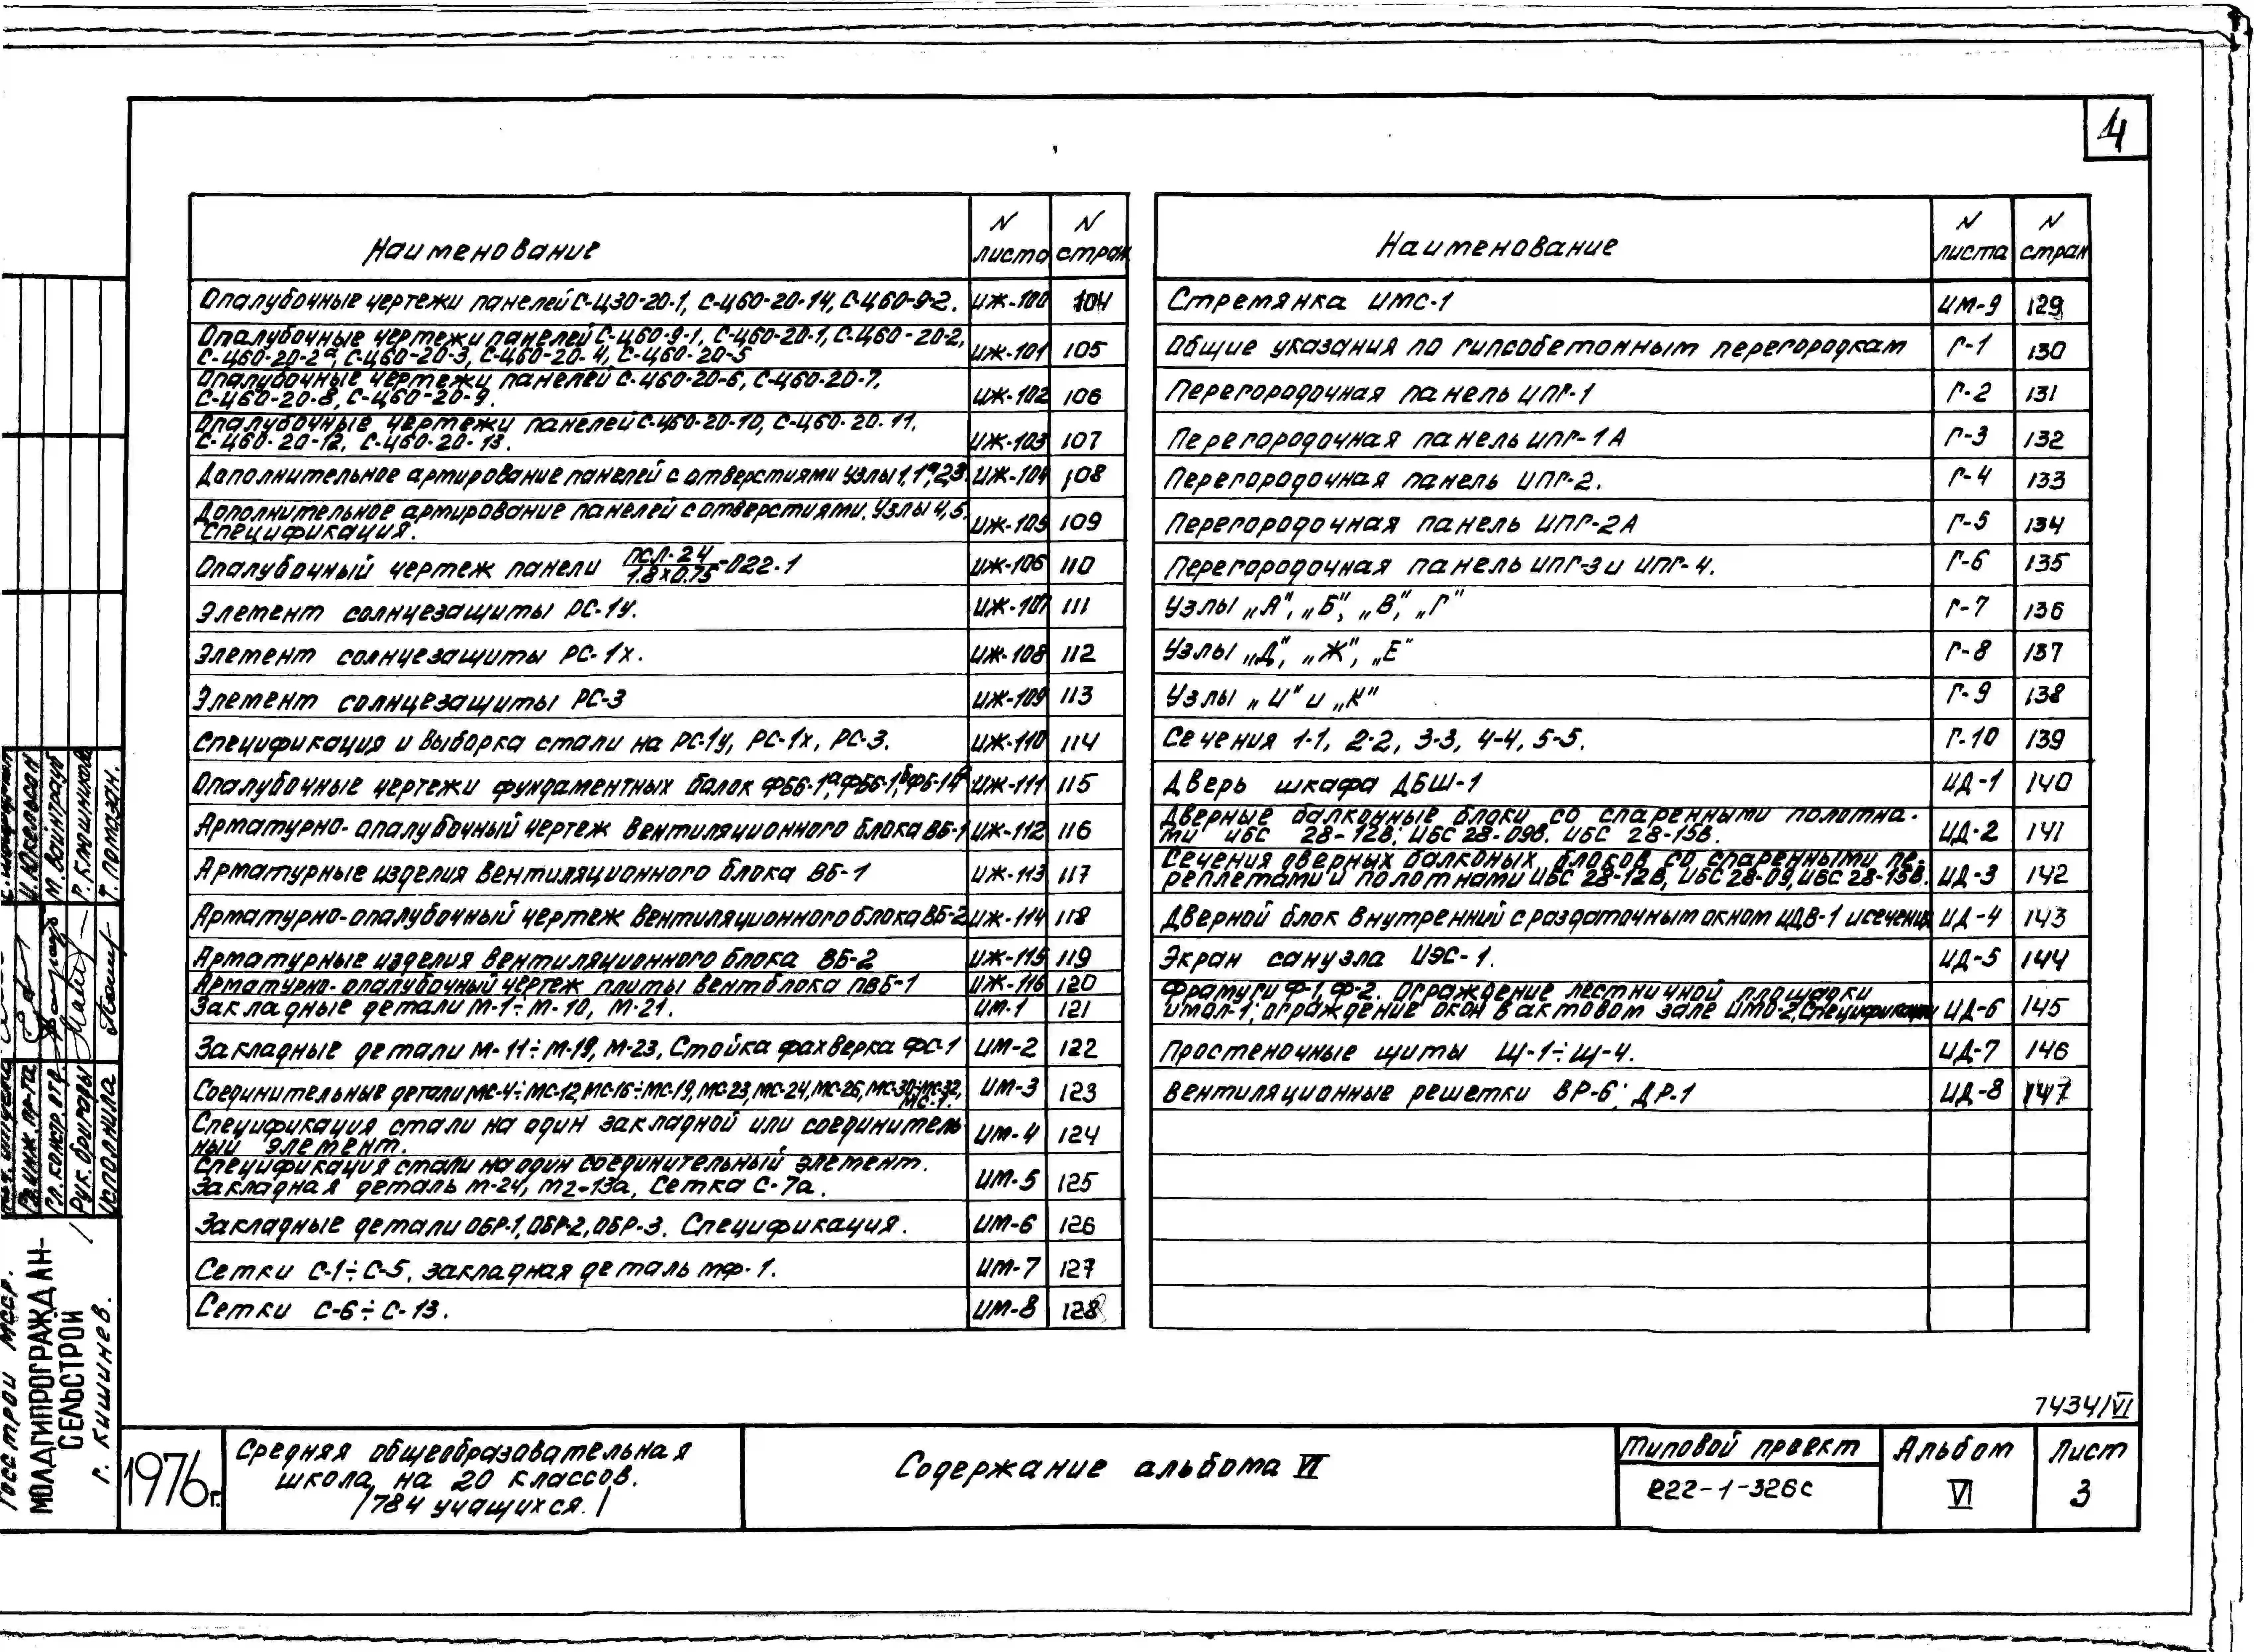 4
Наименование N листа N стран
Опалубочные чертежи панелей С-Ц30-20-1, С-Ц60-20-14, С-Ц60-9-2. ИЖ-100 104
Опалубочные чертежи панелей С-Ц60-9-1, С-Ц60-20-1, С-Ц60-20-2,
С-Ц60-20-2а, С-Ц60-20-3, С-Ц60-20-4, С-Ц60-20-5 ИЖ-101 105
Опалубочные чертежи панелей С-Ц60-20-6, С-Ц60-20-7,
С-Ц60-20-8, С-Ц60-20-9. ИЖ-102 106
Опалубочные чертежи панелей С-Ц60-20-10, С-Ц60-20-11,
С-Ц60-20-12, С-Ц60-20-13. ИЖ-103 107
Дополнительное армирование панелей с отверстиями узлы 1,1а,2,3. ИЖ-104 108
Дополнительное армирование панелей с отверстиями. Узлы 4,5.
Спецификация. ИЖ-105 109
Опалубочный чертеж панели ПСЛ-24/1.8х0.75-022-1 ИЖ-106 110
Элемент солнцезащиты РС-1у. ИЖ-107 111
Элемент солнцезащиты РС-1х. ИЖ-108 112
Элемент солнцезащиты РС-3 ИЖ-109 113
Спецификация и выборка стали на РС-1у, РС-1х, РС-3. ИЖ-110 114
Опалубочные чертежи фундаментных балок ФБ6-1а, ФБ6-1б, ФБ-1в ИЖ-111 115
Арматурно-опалубочный чертеж вентиляционного блока ВБ-1 ИЖ-112 116
Арматурные изделия вентиляционного блока ВБ-1 ИЖ-113 117
Арматурно-опалубочный чертеж вентиляционного блока ВБ-2 ИЖ-114 118
Арматурные изделия вентиляционного блока ВБ-2 ИЖ-115 119
Арматурно-опалубочный чертеж плиты вентблока ПВБ-1 ИЖ-116 120
Закладные детали М-1÷М-10, М-21. ИМ-1 121
Закладные детали М-11÷М-19, М-23, Стойка фахверка ФС-1 ИМ-2 122
Соединительные детали МС-4÷МС-12, МС-16÷МС-19, МС-23, МС-24, МС-26, МС-30÷МС-32,
МС-1. ИМ-3 123
Спецификация стали на один закладной или соединитель-
ный элемент. ИМ-4 124
Спецификация стали на один соединительный элемент.
Закладная деталь М-24, М2-13а, Сетка С-7а. ИМ-5 125
Закладные детали ОБР-1, ОБР-2, ОБР-3. Спецификация. ИМ-6 126
Сетки С-1÷С-5, закладная деталь МФ-1. ИМ-7 127
Сетки С-6÷С-13. ИМ-8 128
Наименование N листа N стран
Стремянка ИМС-1 ИМ-9 129
Общие указания по гипсобетонным перегородкам Г-1 130
Перегородочная панель ИПГ-1 Г-2 131
Перегородочная панель ИПГ-1А Г-3 132
Перегородочная панель ИПГ-2. Г-4 133
Перегородочная панель ИПГ-2А Г-5 134
Перегородочная панель ИПГ-3 и ИПГ-4. Г-6 135
Узлы „А", „Б", „В", „Г" Г-7 136
Узлы „Д", „Ж", „Е" Г-8 137
Узлы „И" и „К" Г-9 138
Сечения 1-1, 2-2, 3-3, 4-4, 5-5. Г-10 139
Дверь шкафа ДБШ-1 ИД-1 140
Дверные балконные блоки со спаренными полотна-
ми ИБС 28-12В, ИБС 28-09В, ИБС 28-15В. ИД-2 141
Сечения дверных балконых блоков со спаренными пе-
реплетами и полотнами ИБС 28-12В, ИБС 28-09, ИБС 28-15В. ИД-3 142
Дверной блок внутренний с раздаточным окном ИДВ-1 и сечения ИД-4 143
Экран санузла ИЭС-1. ИД-5 144
Фрамуги Ф-1, Ф-2. Ограждение лестничной площадки
ИМОЛ-1; ограждение окон в актовом зале ИМО-2, Спецификации ИД-6 145
Простеночные щиты Щ-1÷Щ-4. ИД-7 146
Вентиляционные решетки ВР-6; ДР-1 ИД-8 147
7434/VI
1976г.
Средняя общеобразовательная
школа на 20 классов.
/784 учащихся./
Содержание альбома VI
Типовой проект
222-1-326с
Альбом
VI
Лист
3
Госстрой МССР.
МОЛДГИПРОГРАЖДАН-
СЕЛЬСТРОЙ
г. Кишинев.
Гл. инж. пр-та
Гл. констр. отр.
Рук. бригады
Исполнила
И. Юкельсон
М. Вайнтрауб
Р. Ключникова
Т. Помазан.